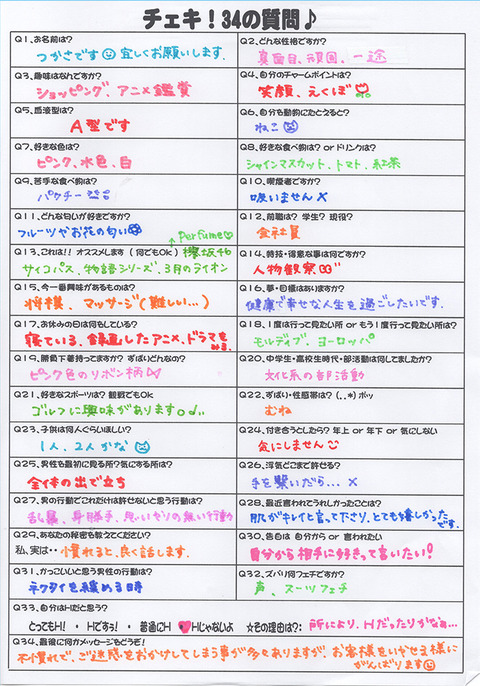 チェキ！34の質問♪
Q1、お名前は？
つかさです 宜しくお願いします。
Q2、どんな性格ですか？
真面目、頑固、一途
Q3、趣味はなんですか？
ショッピング、アニメ鑑賞
Q4、自分のチャームポイントは？
笑顔、えくぼ
Q5、血液型は？
A型です
Q6、自分を動物にたとえると？
ねこ
Q7、好きな色は？
ピンク、水色、白
Q8、好きな食べ物は？ or ドリンクは？
シャインマスカット、トマト、紅茶
Q9、苦手な食べ物は？
パクチー
Q10、喫煙者ですか？
吸いません×
Q11、どんな匂いが好きですか？
フルーツやお花の匂い
Q12、前職は？ 学生？ 現役？
会社員
Q13、これは!! オススメします（何でもOk）
↑ Perfume♡
欅坂46
サイコパス、物語シリーズ、3月のライオン
Q14、特技・得意な事は何ですか？
人物観察
Q15、今一番興味があるものは？
将棋、マッサージ(難しい…)
Q16、夢・目標はありますか？
健康で幸せな人生を過ごしたいです。
Q17、お休みの日は何をしている？
寝ている、録画したアニメ、ドラマをみる。
Q18、1度は行って見たい所 or もう1度行って見たい所は？
モルディブ、ヨーロッパ
Q19、勝負下着持ってますか？ ずばりどんなの？
ピンク色のリボン柄
Q20、中学生・高校生時代・部活動は何してましたか？
文化系の部活動
Q21、好きなスポーツは？ 観戦でもOk
ゴルフに興味があります
Q22、ずばり・性感帯は？（..*）ポッ
むね
Q23、子供は何人ぐらいほしい？
1人、2人かな
Q24、付き合うとしたら？ 年上 or 年下 or 気にしない
気にしません
Q25、男性を最初に見る所？気にする所は？
全体の出で立ち
Q26、浮気どこまで許せる？
手を繋いだら…×
Q27、男の行動でこれだけは許せないと思う行動は？
乱暴、身勝手、思いやりの無い行動
Q28、最近言われてうれしかったことは？
肌がキレイと言って下さり、とても嬉しかったです。
Q29、あなたの秘密を教えてください？
私、実は・・慣れると、良く話します。
Q30、告白は 自分から or 言われたい
自分から相手に好きって言いたい！
Q31、かっこいいと思う男性の行動は？
ネクタイを緩める時
Q32、ズバリ何フェチですか？
声、スーツフェチ
Q33、自分はHだと思う？
とってもH！ ・ Hですっ！ ・ 普通にH ♥Hじゃないよ ☆その理由は？： 所により、Hだったりかなぁ…
Q34、最後に何かメッセージをどうぞ！
不慣れで、ご迷惑をおかけしてしまう事が多くありますが、お客様をいやせる様に
がんばります